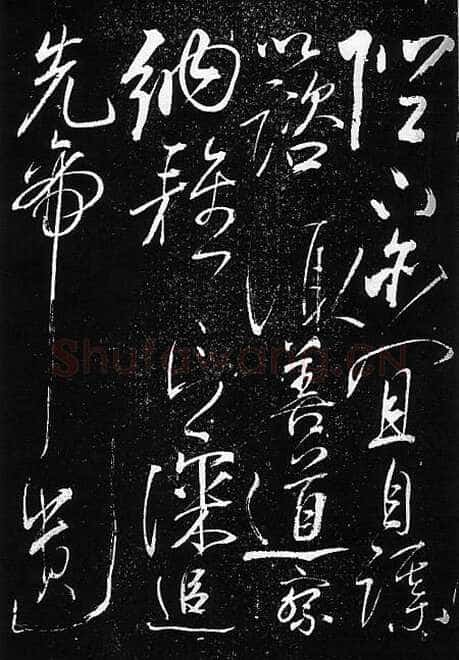 陛下亦宜自謀
以諮諏善道察
納雅言深追
先帝遺
Shufawang.CN